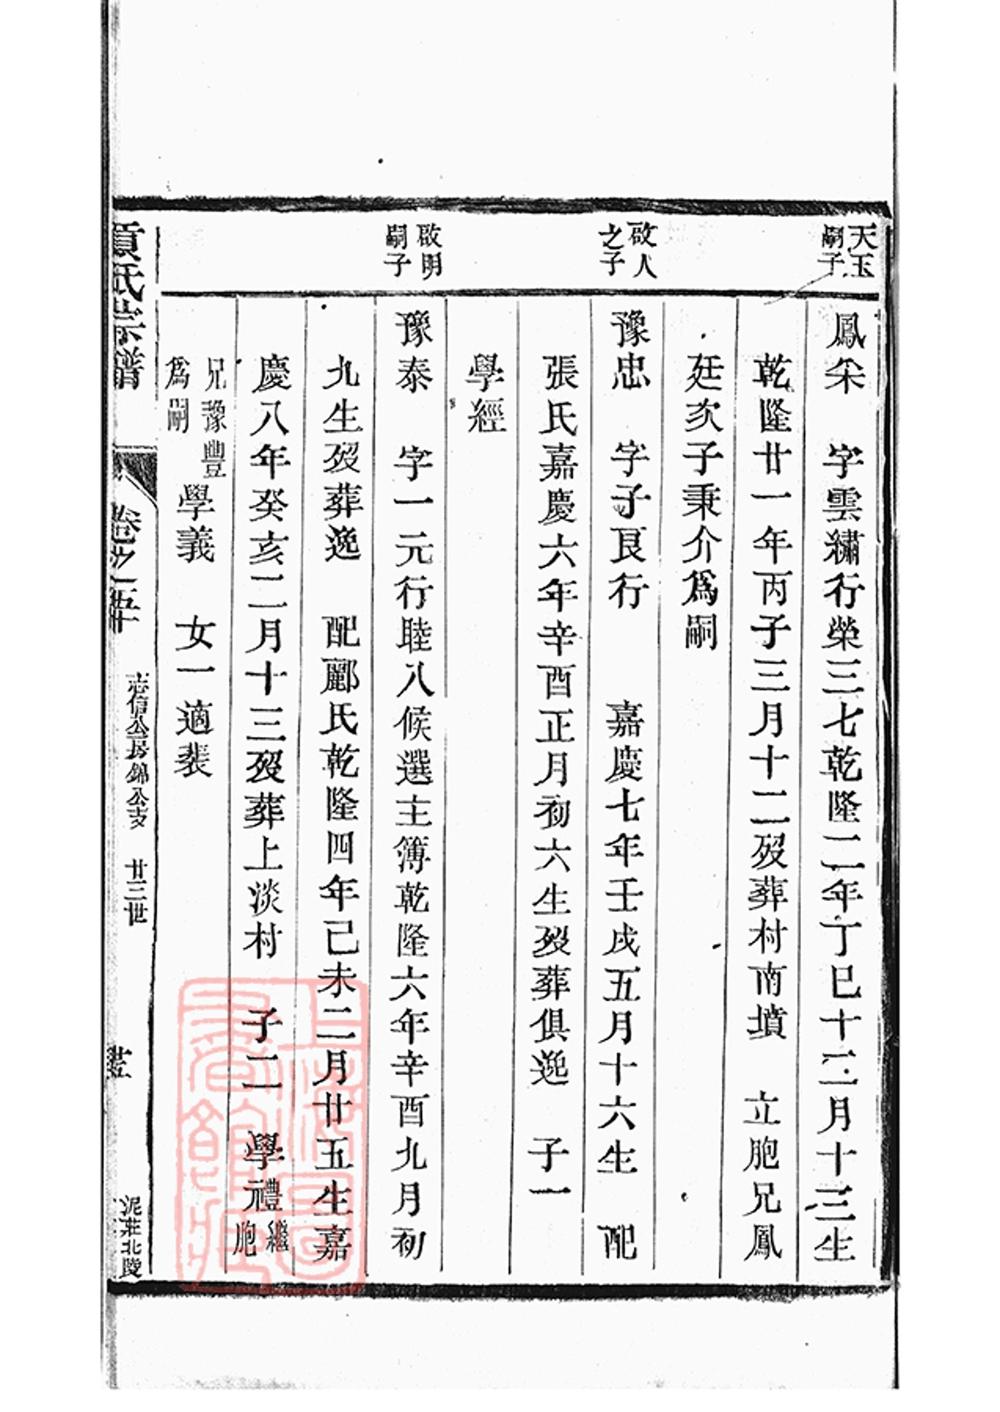 天玉
嗣子
鳳𥹭字雲繡行榮三七乾隆二年丁巳十二月十三生
乾隆廿一年丙子三月十二歿葬村南墳 立胞兄鳳
廷次子秉介爲嗣
啟人
之子
豫忠 字子艮行 嘉慶七年壬戌五月十六生 配
張氏嘉慶六年辛酉正月初六生歿葬俱逸 子一
學經
啟明
嗣子
豫泰 字一元行睦八候選主簿乾隆六年辛酉九月初
九生歿葬逸 配酈氏乾隆四年己未二月廿五生嘉
慶八年癸亥二月十三歿葬上淡村 子二 學禮繼胞
兄豫豐
爲嗣
學義 女一適裴
氏宗譜
卷之五十
志信公房錦公支 廿三世
泥莊北陵
上海圖書館藏